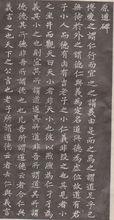 原道碑
博愛之謂仁行而宜之之謂義由是而之焉之謂道足乎己
無待於外之謂德仁與義為定名道與德為虛位故道有君
子小人而德有凶有吉老子之小仁義非毀之也其見者小
也坐井而觀天曰天小者非天小也彼以煦煦為仁孑孑為
義其小之也則宜其所謂道道其所道非吾所謂道也其所
謂德德其所德非吾所謂德也凡吾所謂道德云者合仁與
義言之也天下之公言也老子之所謂道德云者去仁與義